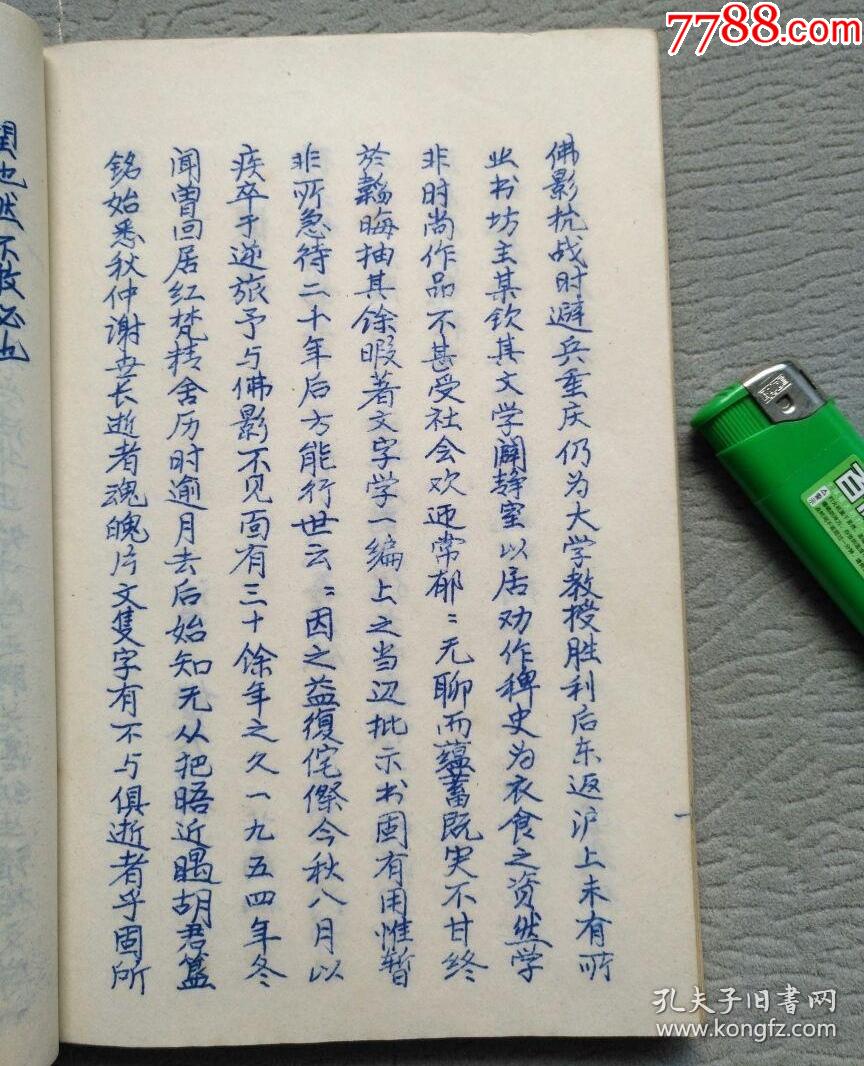 佛影抗战时避兵重庆仍为大学教授胜利后东返沪上未有所
业书坊主某钦其文学闢静室以居劝作稗史为衣食之资然学
非时尚作品不甚受社会欢迎常郁〻无聊而蕴蓄既宏不甘终
於韬晦抽其馀暇著文字学一编上之当辺批示书固有用惟暂
非所急待二十年后方能行世云〻因之益復侘傺今秋八月以
疾卒于逆旅予与佛影不见面有三十馀年之久一九五四年冬
闻曾回居红梵精舍历时逾月去后始知无从把晤近暍胡君簋
铭始悉秋仲谢世长逝者魂魄片文隻字有不与俱逝者乎固所
也然不敢必也
7788.com
孔夫子旧书网
www.kongfz.com